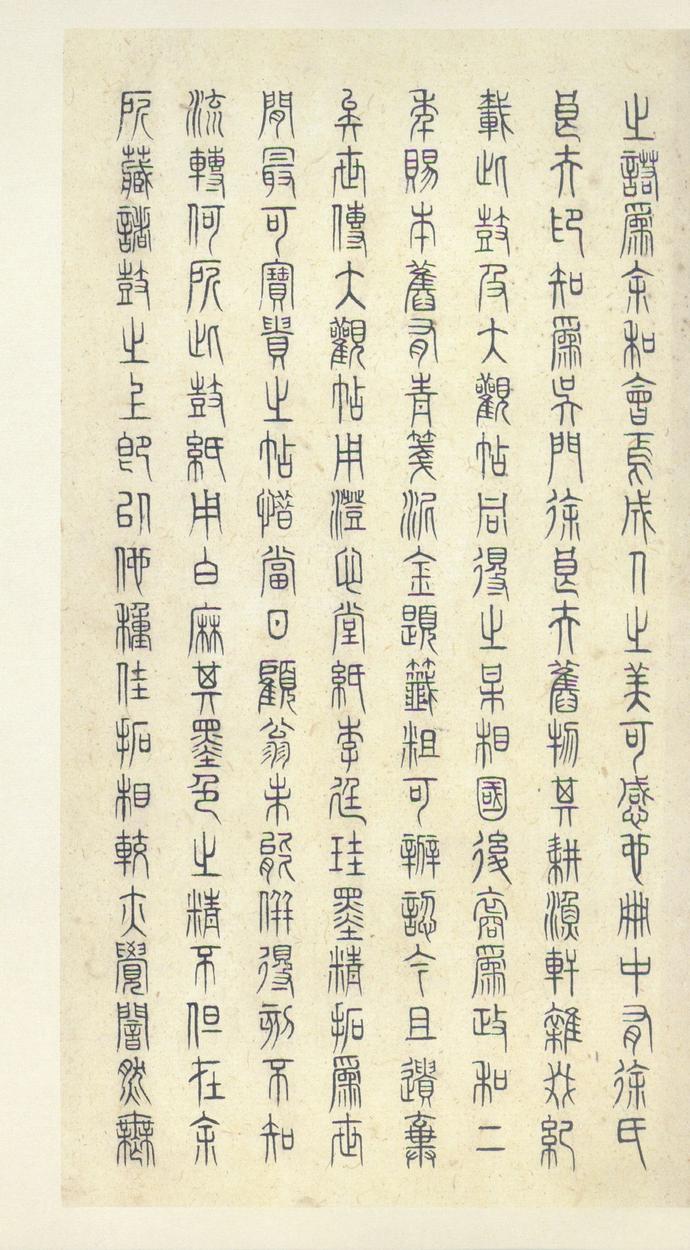 之諾爲余和會焉成人之美可感也冊中有徐氏
良夫印知爲吳門徐良夫舊物其耕漁軒雜紀
載此鼓及大觀帖同得之某相國後裔爲政和二
年賜本舊有青箋泥金題籤粗可辨認今且遺棄
矣世傳大觀帖用澄心堂紙李廷珪墨精拓爲世
間最可寶貴之帖惜當日顧翁未能併得割不知
流轉何所此鼓紙用白麻其墨色之精不但在余
所藏諸鼓之上即以他種佳拓相較亦覺闇然無